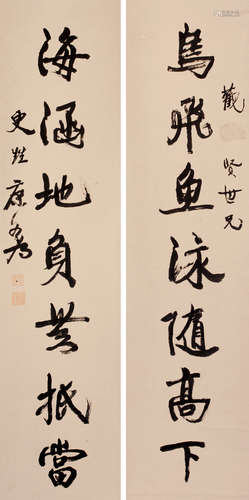 觀 贤世兄
鳥飛魚泳随高下
海涵地負無抵當
更甡 康有為